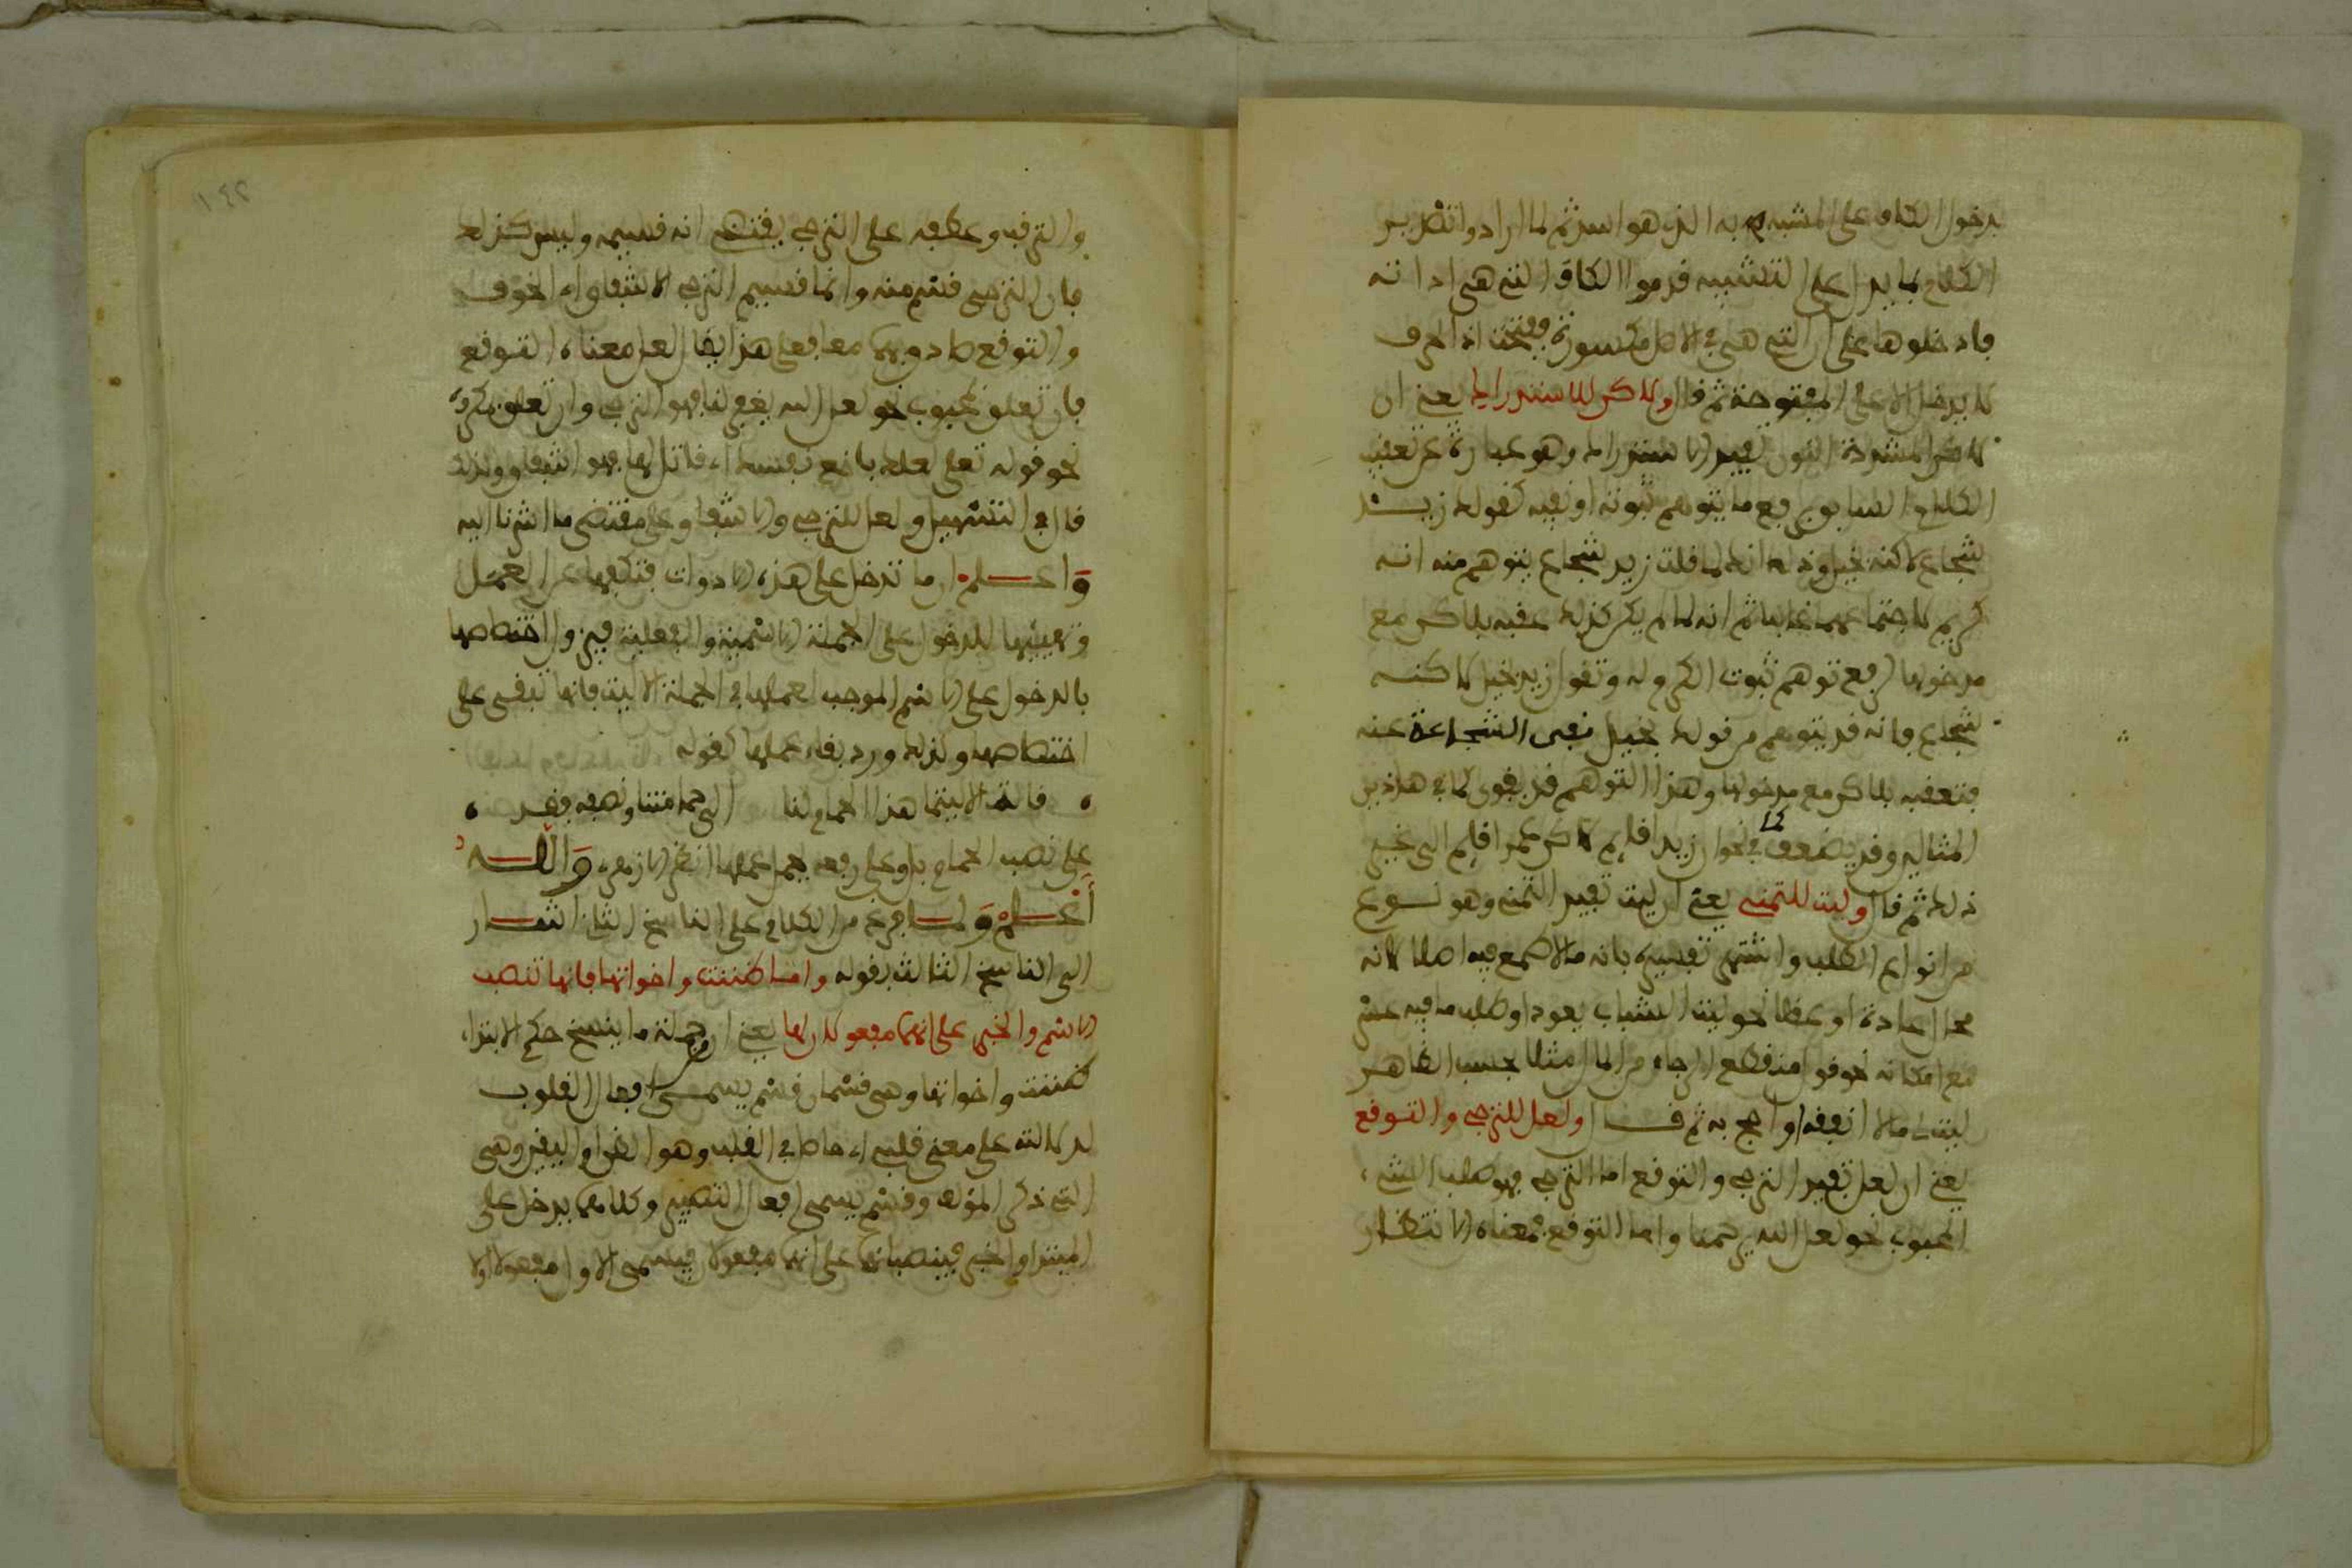 بدخول الكاف على المشبه به الذي هو اسد ثم لما ارادوا تصدير
الكلام بما يدل على التشبيه قدموا الكاف التي هي اداته
فادخلوها على ان التي هي في الاصل مكسورة ففتحت اذ الحرف
لا يدخل الا على المفتوحة ثم قال ولاكن للاستدراك يعني ان
لاكن المشددة النون تفيد الاستدراك وهو عبارة عن تعقيب
الكلام السابق برفع ما يتوهم ثبوته او نفيه كقولك زيد
شجاع لاكنه بخيل وذلك انك لما قلت زيد شجاع يتوهم منه انه
كريم لاجتماعهما غالبا ثم انه لما لم يكن كذلك عقبه بلاكن مع
مدخولها لرفع توهم ثبوت الكرم له وتقول زيد بخيل لاكنه
شجاع فانه قد يتوهم من قولك بخيل نفي الشجاعة عنه
فتعقبه بلاكن مع مدخولها وهذا التوهم قد يقوى كما في هاذين
المثالين وقد يضعف كما في نحو ان زيدا قايم لاكن عمرا قايم الى غير
ذلك ثم قال وليت للتمني يعني ان ليت تفيد التمني وهو نوع
من انواع الطلب واشتهر تفسيره بانه ما لا طمع فيه اصلا لانه
محال عادة او عقلا نحو ليت الشباب يعود او طلب ما فيه عسر
مع امكانه نحو قول منقطع الرجاء من المال مثلا بحسب الظاهر
ليت لي مالا انفقه او احج به ثم قال ولعل للترجي والتوقع
يعني ان لعل تفيد الترجي والتوقع اما الترجي فهو طلب الشيء
المحبوب نحو لعل الله يرحمنا واما التوقع فمعناه الانتظار
والترقب وعطفه على الترجي يقتضي انه قسيمه وليس كذلك
فان الترجي قسم منه وانما قسيم الترجي الاشفاق اي الخوف
والتوقع صادق بهما معا فعلى هذا يقال لعل معناه التوقع
فان تعلق بمحبوب نحو لعل الله يغفر لنا فهو الترجي وان تعلق بمكروه
نحو قوله تعلى لعلك باخع نفسك اي قاتل لها فهو اشفاق ولذلك
قال في التسهيل ولعل للترجي والاشفاق وعلى مقتضى ما اشرنا اليه
واعلم ان ما تدخل على هذه الادوات فتكفها عن العمل
وتهيئها للدخول على الجملة الاسمية والفعلية فيزول اختصاصها
بالدخول على الاسم الموجب لعملها في الجملة الا ليت فانها تبقى على
اختصاصها ولذلك ورد بقاء عملها كقوله
قالت الا ليتما هذا الحمام لنا الى حمامتنا ونصفه فقد
على نصب الحمام بل وعلى رفعه يحمل عملها انظر الازهري والله
اعلم ولما فرغ من الكلام على الناسخ الثاني اشار
الى الناسخ الثالث بقوله واما ظننت واخواتها فانها تنصب
الاسم والخبر على انهما مفعولان لها يعني ان من جملة ما ينسخ حكم الابتداء
ظننت واخواتها وهي قسمان قسم يسمى افعال القلوب
لدلالته على معنى قلبي اي حاصل في القلب وهو الظن او اليقين وهي
التي ذكر المؤلف وقسم يسمى افعال التصيير وكلاهما يدخل على
المبتدا والخبر فينصبانهما على انهما مفعولان فيسمى الاول مفعولا اولا